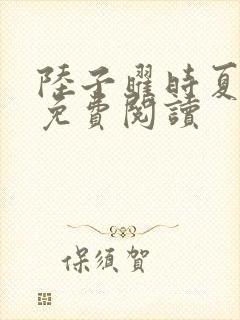 陸子曜時夏
免費閱讀
保須賀